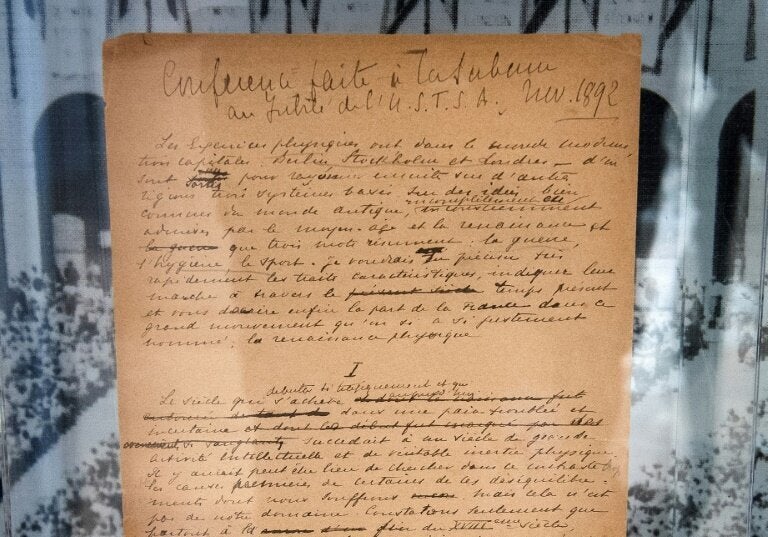 Conférence faite à la Sorbonne
au Jubilé de l'U.S.F.S.A. Nov. 1892
Les Exercices physiques ont dans le monde moderne
trois capitales: Berlin, Stockholm et Londres — d'où
sont sortis pour rayonner ensuite sur d'autres
régions trois systèmes basés sur des idées bien
incomplètement et
connues du monde antique, inconsciemment
admises par le moyen-age et la renaissance et
la guerre que trois mots résument: la guerre,
l'hygiène, le sport. Je voudrais en préciser très
rapidement les traits caractéristiques, indiquer leur
marche à travers le présent siècle temps présent
et vous dire enfin la part de la France dans ce
grand mouvement qu'on a si justement
nommé: la renaissance physique
I
débutait si tragiquement et qui
Le siècle qui s'achève fut
dans une paix troublée et
incertaine et dont le début fut marqué par
succédait à un siècle de grande
activité intellectuelle et de véritable inertie physique.
Il y aurait peut être lieu de chercher dans ce contraste
les causes premières de certains de ces déséquilibre-
ments dont nous souffrons mais cela n'est
pas de notre domaine. Constatons seulement que
partout à la fin du XVIIIeme siècle,